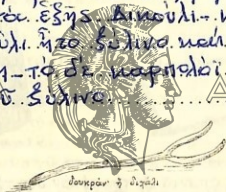 τα ἑξῆς. Δικούλι-
ύλι ἦτο ξύλινο καὶ
η-το δὲ καρπολόϊ
ξύλινο
δουκράν' ἢ διχάλι